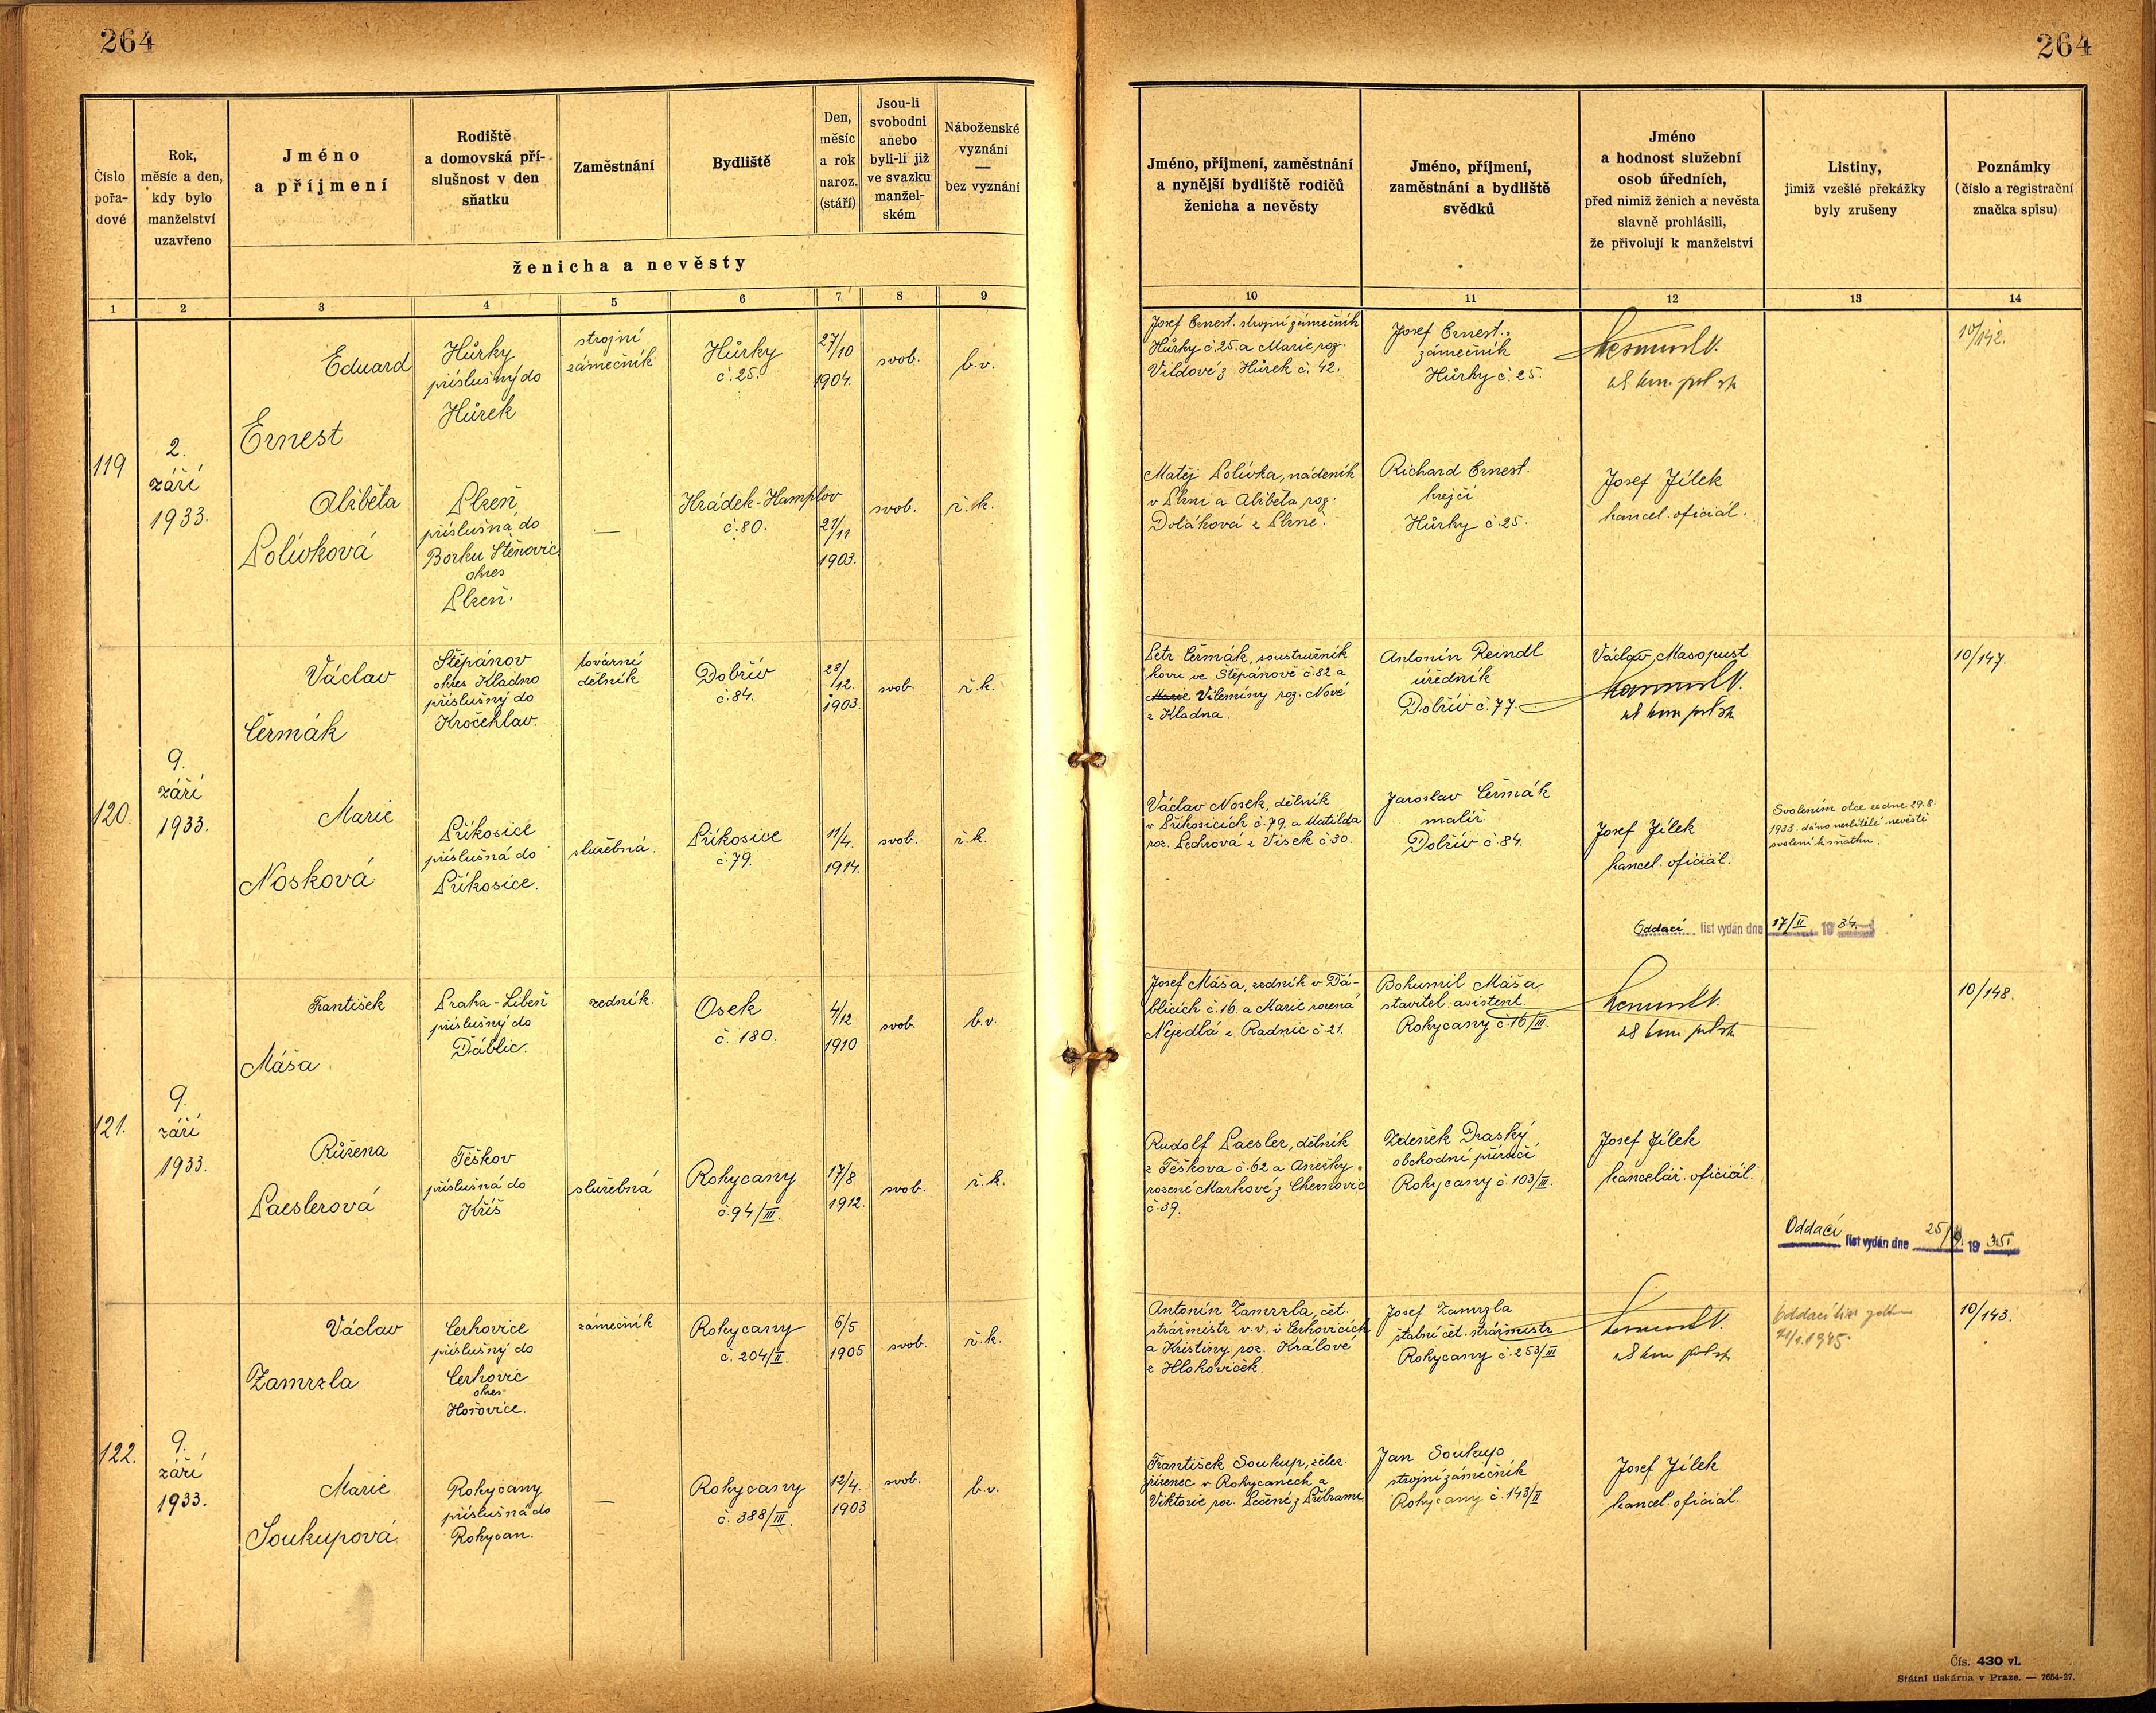 264
264
Číslo
pořa-
dové
Rok,
měsíc a den,
kdy bylo
manželství
uzavřeno
Jméno
a příjmení
Rodiště
a domovská pří-
slušnost v den
sňatku
Zaměstnání
Bydliště
Den,
měsíc
a rok
naroz.
(stáří)
Jsou-li
svobodni
anebo
byli-li již
ve svazku
manžel-
ském
Náboženské
vyznání
—
bez vyznání
ženicha a nevěsty
Jméno, příjmení, zaměstnání
a nynější bydliště rodičů
ženicha a nevěsty
Jméno, příjmení,
zaměstnání a bydliště
svědků
Jméno
a hodnost služební
osob úředních,
před nimiž ženich a nevěsta
slavně prohlásili,
že přivolují k manželství
Listiny,
jimiž vzešlé překážky
byly zrušeny
Poznámky
(číslo a registrační
značka spisu)
1 2 3 4 5 6 7 8 9 10 11 12 13 14
119
2.
září
1933.
Eduard
Ernest
Hůrky
príslušný do
Hůrek
strojní
zámečník
Hůrky
č.25.
27/10
1904.
svob.
b.v.
Josef Ernest. strojní zámečník
Hůrky č.25. a Marie roz.
Vildové z Hůrek č. 42.
Josef Ernest.
zámečník
Hůrky č.25.
10/142.
Alžběta
Polívková
Plzeň
příslušná do
Borku Štěnovic.
okres
Plzeň.
—
Hrádek-Hamplov
č.80.
21/11
1903.
svob.
ř.k.
Matěj Polívka, nádeník
v Plzni a Alžběta roz.
z Plzně.
Richard Ernest.
krejčí
Hůrky č.25.
Josef Jílek
kancel. oficiál.
120.
9.
září
1933.
Václav
Čermák
Štěpánov
okres Kladno
příslušný do
Kročehlav.
tovární
dělník
Dobřív
č.84.
28/12.
1903.
svob.
ř.k.
Petr Čermák, soustružník
kovů ve Štěpánově č.82 a
Marie Vilemíny roz. Nové
z Kladna.
Antonín Reindl
úředník
Dobřív č.77.
Václav Masopust
10/147.
Marie
Nosková
Příkosice
příslušná do
Příkosice.
služebná.
Příkosice
č.79.
11/4.
1914.
svob.
ř.k.
Václav Nosek, dělník
v Příkosicích č.79. a Matilda
roz. Lechrová z Vísek č.30.
Jaroslav Čermák
malíř
Dobřív č.84.
Josef Jílek
kancel. oficiál.
Svolením otce ze dne 29.8.
1933. dáno nezletilé nevěstě
svolení k sňatku.
Oddací list vydán dne 17/II 1934.
121.
9.
září
1933.
František
Máša
Praha-Libeň
príslušný do
Ďáblic.
zedník.
Osek
č. 180.
4/12
1910
svob.
b.v.
Josef Máša, zedník v Ďá-
blicích č.16. a Marie rozená
Nejedlá z Radnic č.21.
Bohumil Máša
stavitel. asistent.
Rokycany č.16/III.
10/148.
Růžena
Paeslerová
Těškov
příslušná do
Kříš
služebná
Rokycany
č.94/III.
17/8
1912.
svob.
ř.k.
Rudolf Paesler, dělník
z Těškova č.62 a Anežky
rozené Markové z Chernovic
č.39.
Zdeněk Draský
obchodní příručí
Rokycany č.103/III.
Josef Jílek
kancelář. oficiál.
Oddací list vydán dne 25/9. 1935.
122.
9.
září
1933.
Václav
Zamrzla
Cerhovice
příslušný do
Cerhovic
okres
Hořovice.
zámečník
Rokycany
č. 204/II.
6/5
1905
svob.
ř.k.
Antonín Zamrzla, čet.
strážmistr v.v. v Cerhovicích
a Kristiny roz. Králové
z Hlohoviček.
Josef Zamrzla
štábní čet. strážmistr
Rokycany č.253/III
Oddací list
1945.
10/143.
Marie
Soukupová
Rokycany
příslušná do
Rokycan.
—
Rokycany
č. 388/III.
12/4.
1903
svob.
b.v.
František Soukup, želez.
zřízenec v Rokycanech a
Viktorie roz. Pečené z Příbrami.
Jan Soukup
strojní zámečník
Rokycany č.143/II
Josef Jílek
kancel. oficiál.
Čís. 430 vl.
Státní tiskárna v Praze. — 7654-27.